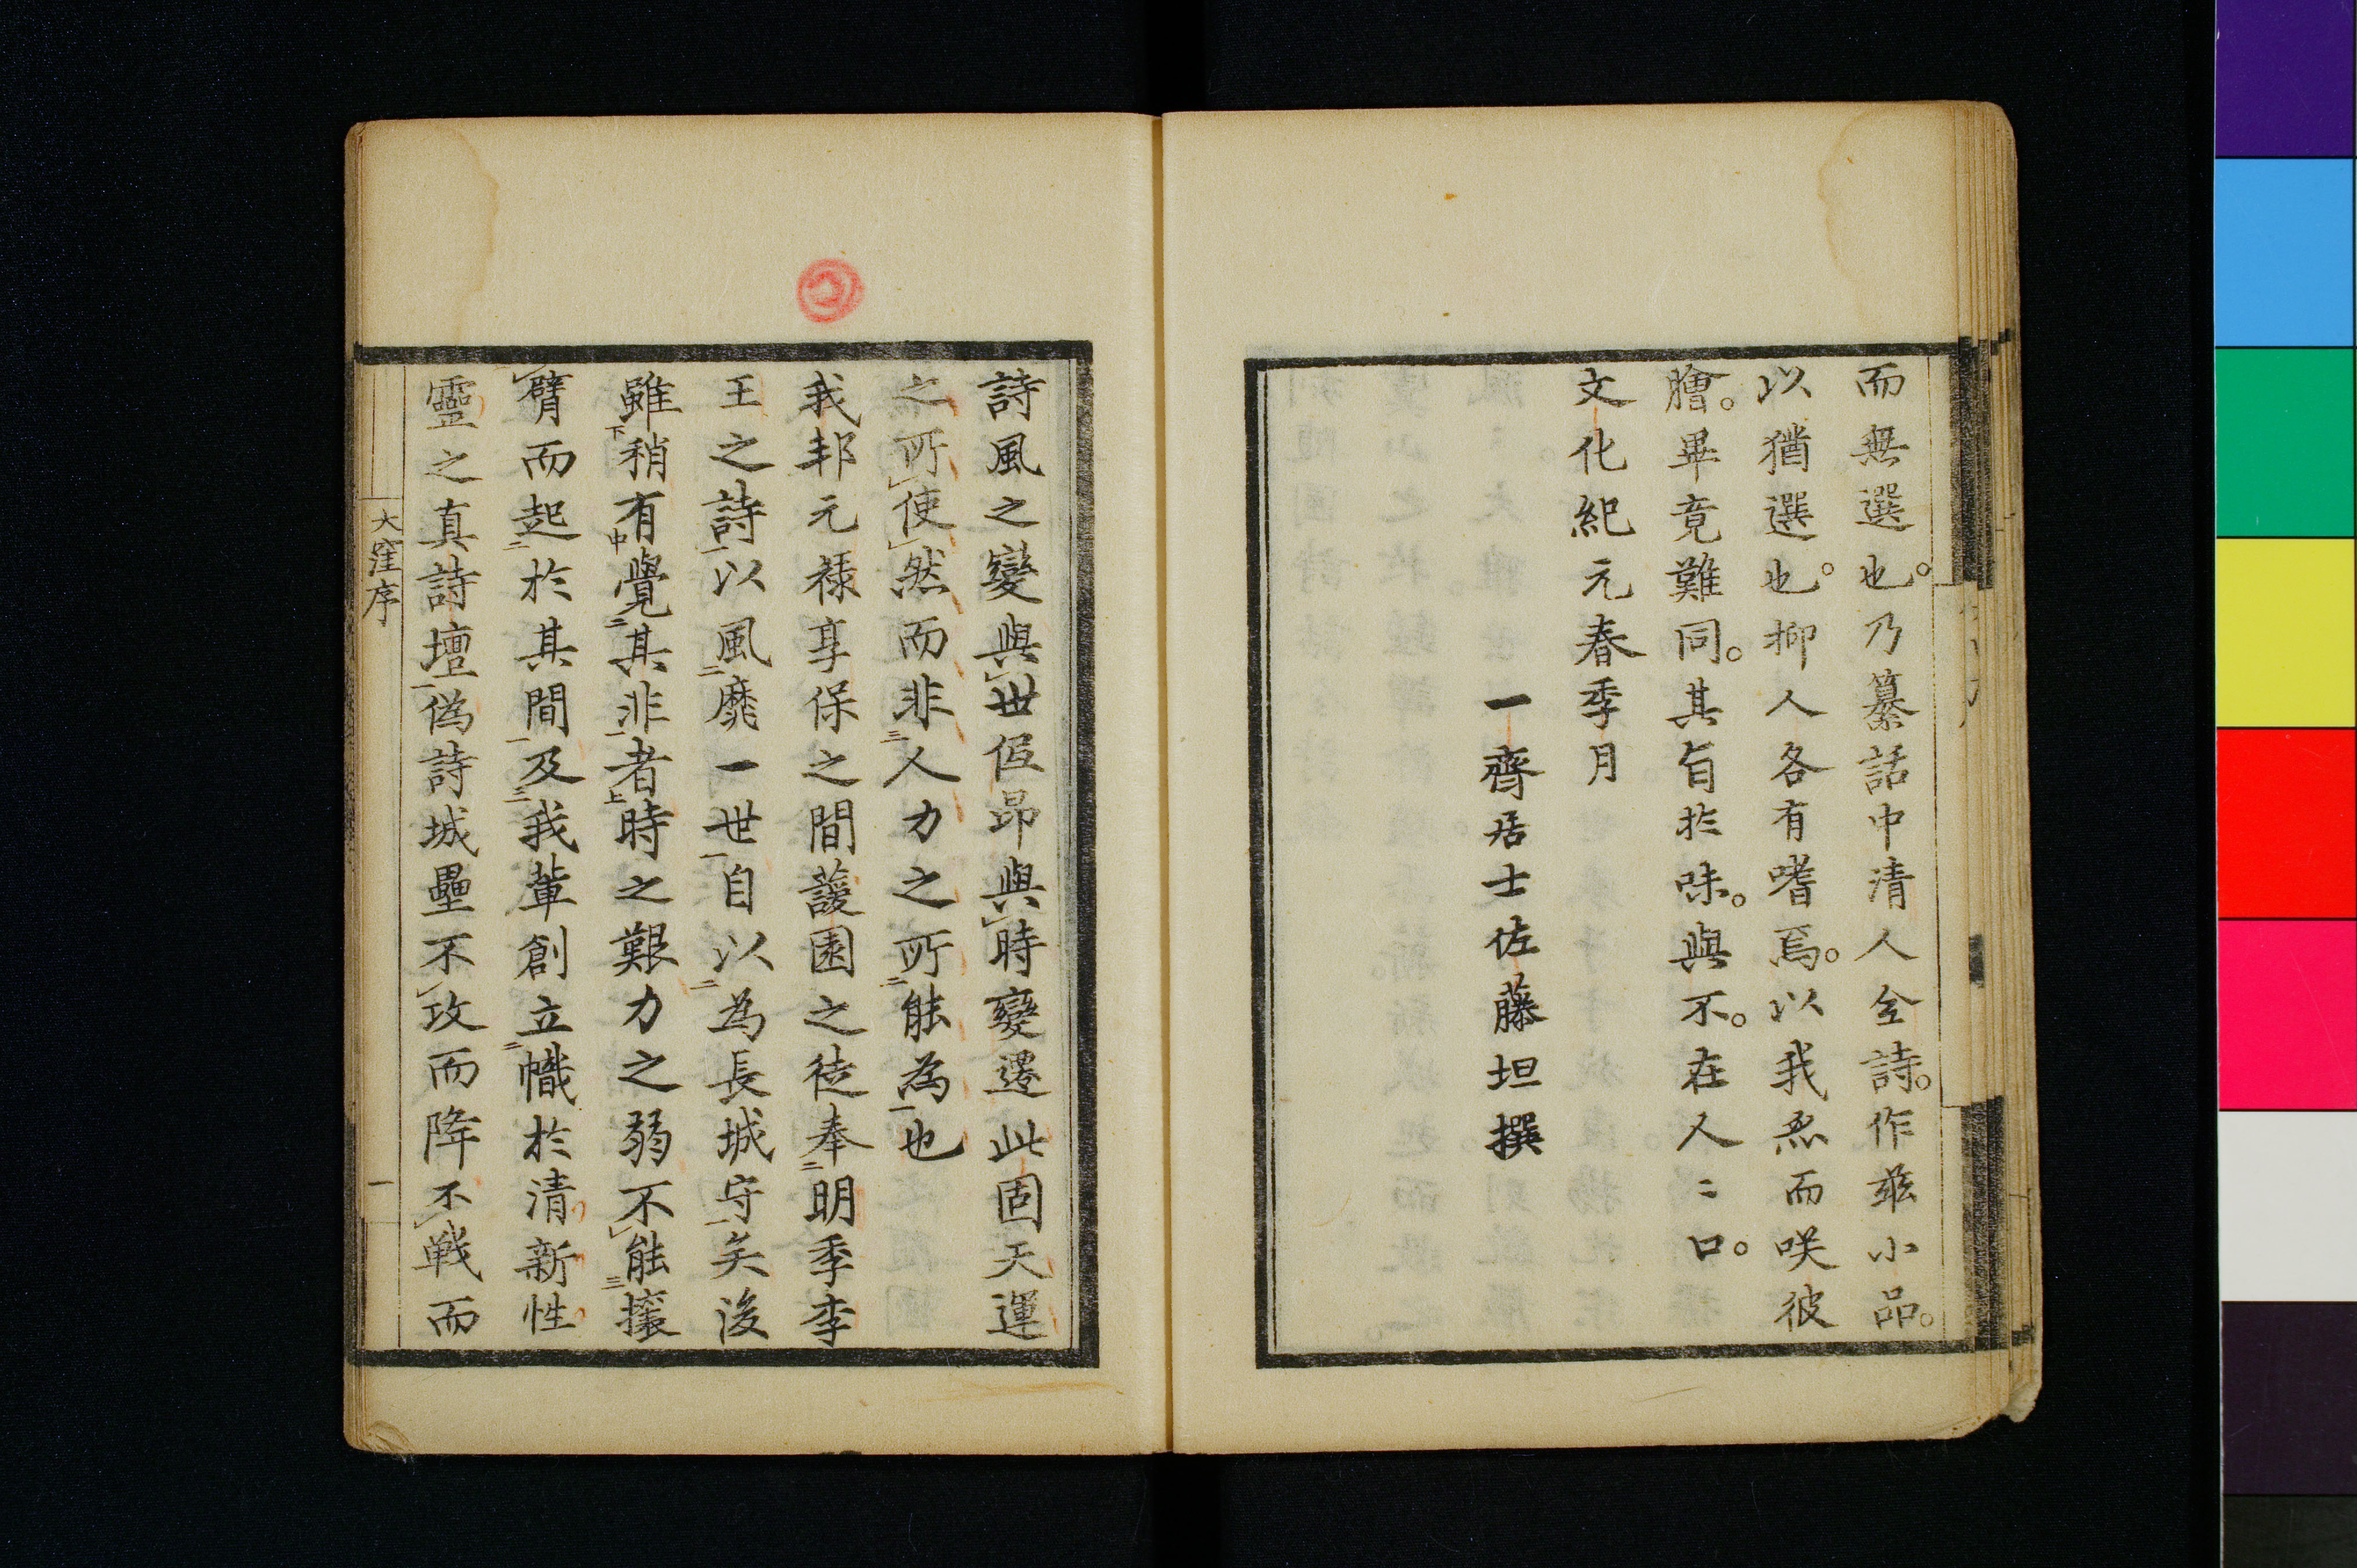 而無選也。乃纂話中清人全詩。作玆小品。
以猶選也。抑人各有嗜焉。以我炙而咲彼
膾。畢竟難同。其旨於味。與不。在人〻口。
文化紀元春季月
一齋居士佐藤坦撰
詩風之變與世低昂與時變遷此固天運
之所使然而非三人力之所二能為一也
我邦元祿享保之間蘐園之徒奉二明季李
王之詩一以風二靡一世一自以二為長城守一矣後
雖下稍有中覺二其非一者上時之艱力之弱不能三攘
臂而起二於其間一及三我輩創立二幟於清新性
靈之真詩壇一偽詩城壘不攻而降不戦而
大窪序
一